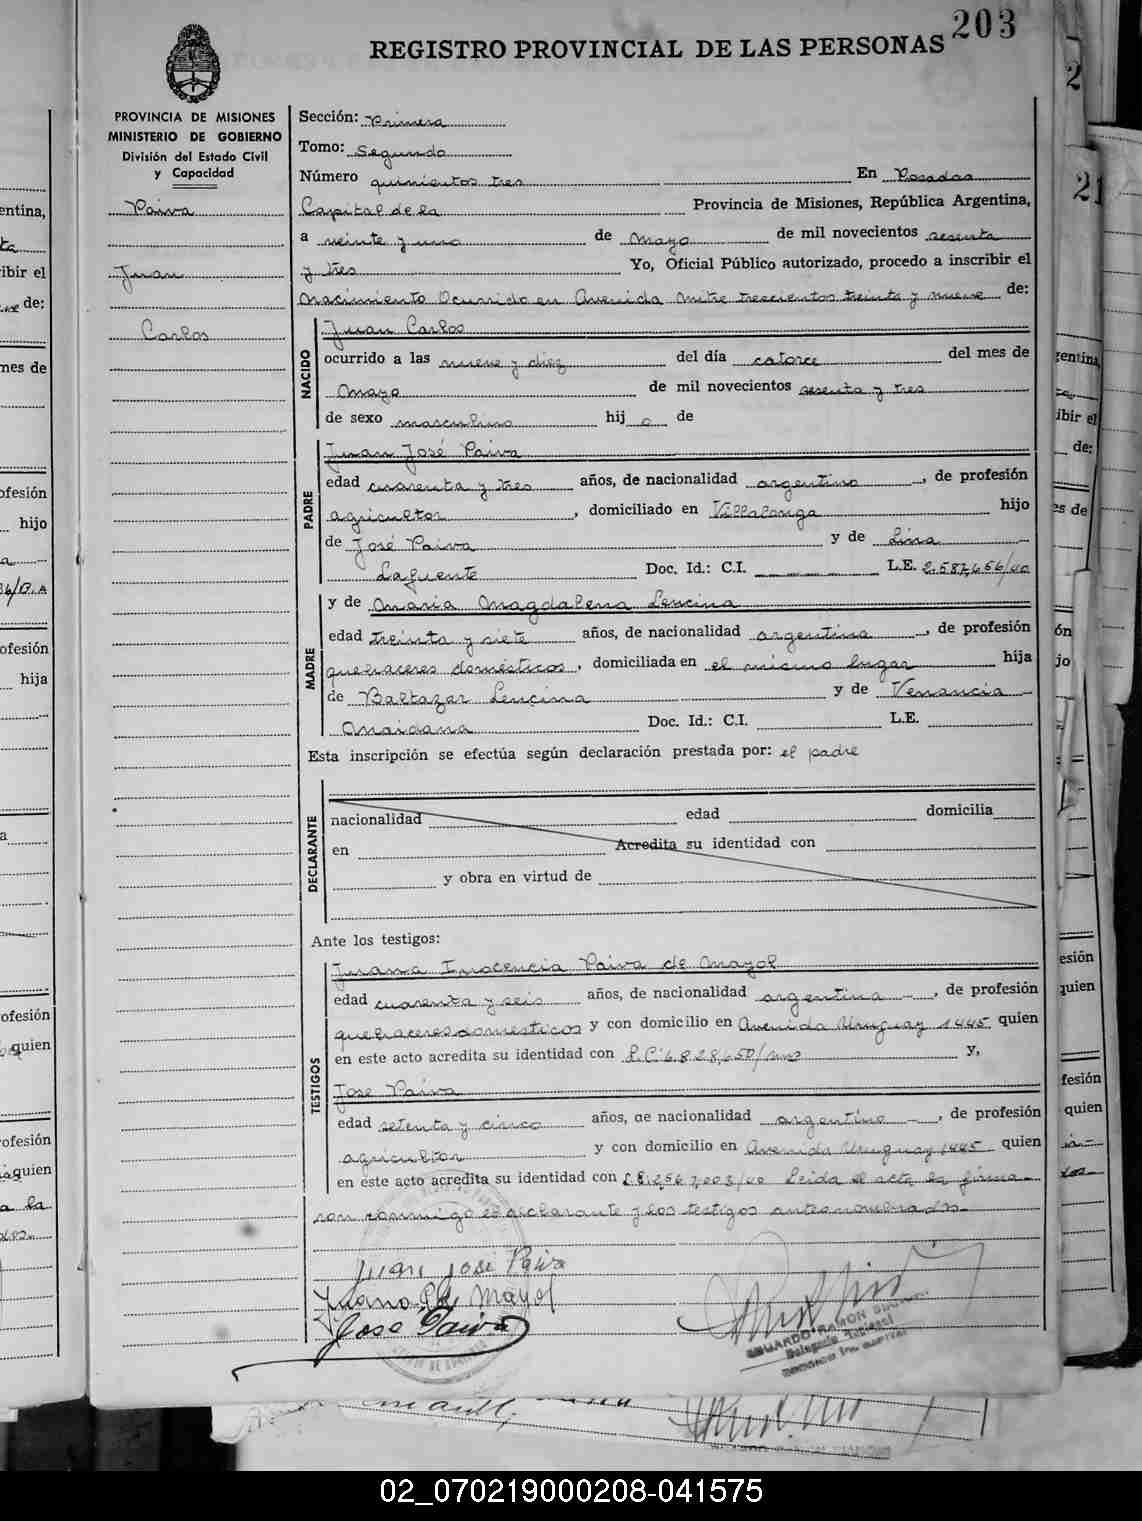 203
REGISTRO PROVINCIAL DE LAS PERSONAS
PROVINCIA DE MISIONES
MINISTERIO DE GOBIERNO
División del Estado Civil
y Capacidad
Paiva
Juan
Carlos
Sección: Primera
Tomo: Segundo
Número quinientos tres En Posadas
Capital de la Provincia de Misiones, República Argentina,
a veinte y uno de Mayo de mil novecientos sesenta
y tres Yo, Oficial Público autorizado, procedo a inscribir el
Nacimiento Ocurrido en Avenida Mitre trescientos treinta y nueve de:
NACIDO
Juan Carlos
ocurrido a las nueve y diez del día catorce del mes de
Mayo de mil novecientos sesenta y tres
de sexo masculino hij o de
PADRE
Juan José Paiva
edad cuarenta y tres años, de nacionalidad argentino, de profesión
agricultor, domiciliado en Villalonga hijo
de José Paiva y de Lina
Lafuente Doc. Id.: C.I. L.E. 2.587,656/40
MADRE
y de Maria Magdalena Lencina
edad treinta y siete años, de nacionalidad argentina, de profesión
quehaceres domésticos, domiciliada en el mismo lugar hija
de Baltazar Lencina y de Venancia
Maidana Doc. Id.: C.I. L.E.
Esta inscripción se efectúa según declaración prestada por: el padre
DECLARANTE
nacionalidad edad domicilia
en Acredita su identidad con
y obra en virtud de
Ante los testigos:
TESTIGOS
Juana Inocencia Paiva de Mayol
edad cuarenta y seis años, de nacionalidad argentina, de profesión
quehaceres domesticos y con domicilio en Avenida Uruguay 1445 quien
en este acto acredita su identidad con L.C. 6.828,650/uno y,
Jose Paiva
edad setenta y cinco años, de nacionalidad argentino, de profesión
agricultor y con domicilio en Avenida Uruguay 1445 quien
en este acto acredita su identidad con L.E. 2,567,003/40 Leida el acta la firma
ron conmigo el declarante y los testigos antesnombrados.
Juan José Paiva
Juana P. de Mayol
Jose Paiva
EDUARDO RAMON
02_070219000208-041575